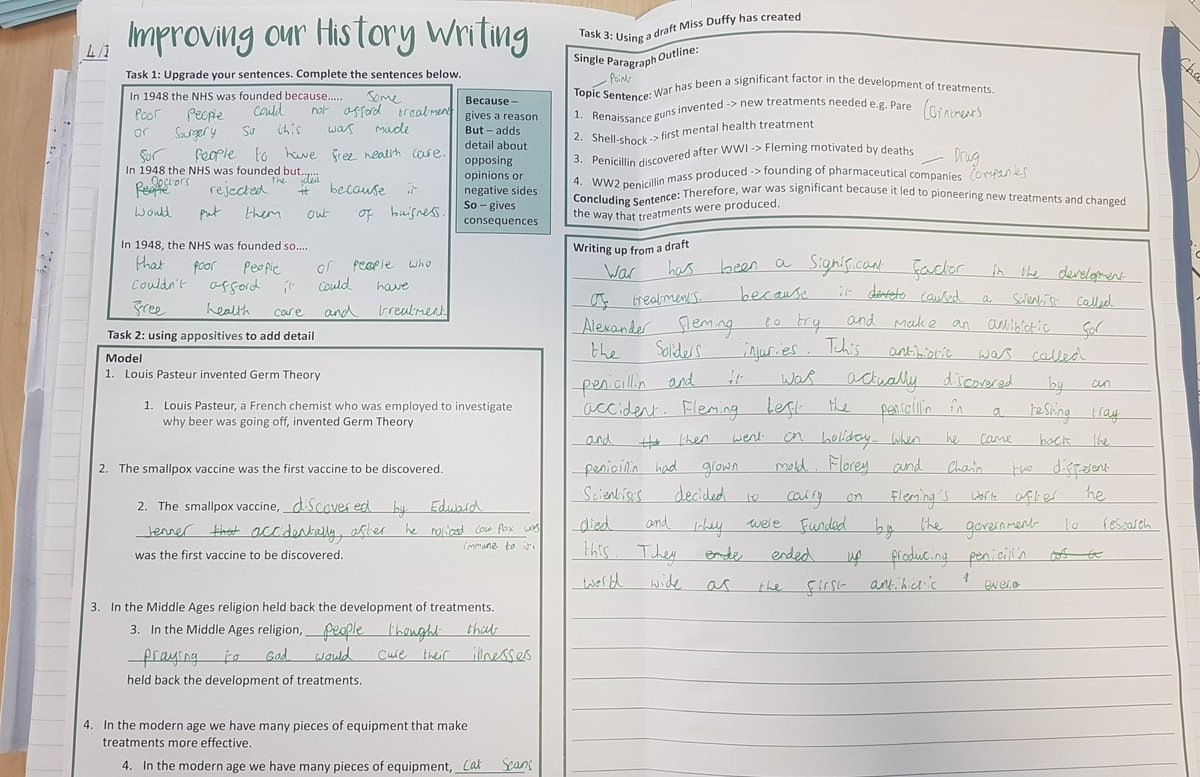 Improving our History Writing
4/1
Task 1: Upgrade your sentences. Complete the sentences below.
In 1948 the NHS was founded because..... Some
Poor people could not afford treatment
or surgery so this was made
for people to have free health care.
In 1948 the NHS was founded but.....
People Doctors rejected it the idea because it
would put them out of buisness.
In 1948, the NHS was founded so....
that poor people or people who
couldn't afford it could have
free health care and treatment.
Because –
gives a reason
But – adds
detail about
opposing
opinions or
negative sides
So – gives
consequences
Task 2: using appositives to add detail
Model
1. Louis Pasteur invented Germ Theory
1. Louis Pasteur, a French chemist who was employed to investigate
why beer was going off, invented Germ Theory
2. The smallpox vaccine was the first vaccine to be discovered.
2. The smallpox vaccine, discovered by Edward
Jenner that accidentally, after he noticed cow pox was
immune to it.
was the first vaccine to be discovered.
3. In the Middle Ages religion held back the development of treatments.
3. In the Middle Ages religion, people thought that
praying to God would cure their illnesses
held back the development of treatments.
4. In the modern age we have many pieces of equipment that make
treatments more effective.
4. In the modern age we have many pieces of equipment, Cat Scans
Task 3: Using a draft Miss Duffy has created
Single Paragraph Outline:
Point
Topic Sentence: War has been a significant factor in the development of treatments.
1. Renaissance guns invented -> new treatments needed e.g. Pare (Ointments)
2. Shell-shock -> first mental health treatment
3. Penicillin discovered after WWI -> Fleming motivated by deaths
4. WW2 penicillin mass produced -> founding of pharmaceutical companies – Drug companies
Concluding Sentence: Therefore, war was significant because it led to pioneering new treatments and changed
the way that treatments were produced.
Writing up from a draft
War has been a significant factor in the development
of treatments. because it caused a scientist called
Alexander Fleming to try and make an antibiotic for
the Solders injuries. This antibiotic was called
penicillin and it was actually discovered by an
accident. Fleming left the penicillin in a testing tray
and then went on holiday. When he came back the
penicillin had grown mold. Florey and Chain two different
Scientists decided to carry on Fleming's work after he
died and they were funded by the government to research
this. They ende ended up producing penicillin as a
world wide as the first antibiotic ever.